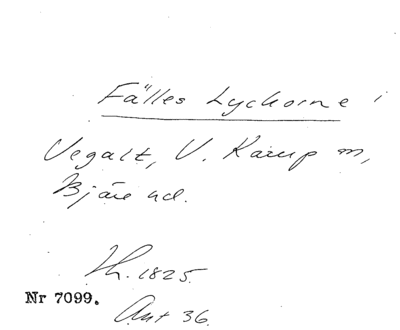 Fälles Lyckorne i
Vegalt, V. Karup sn,
Bjäre hd.
Th. 1825.
Nr 7099.
Aut 36.